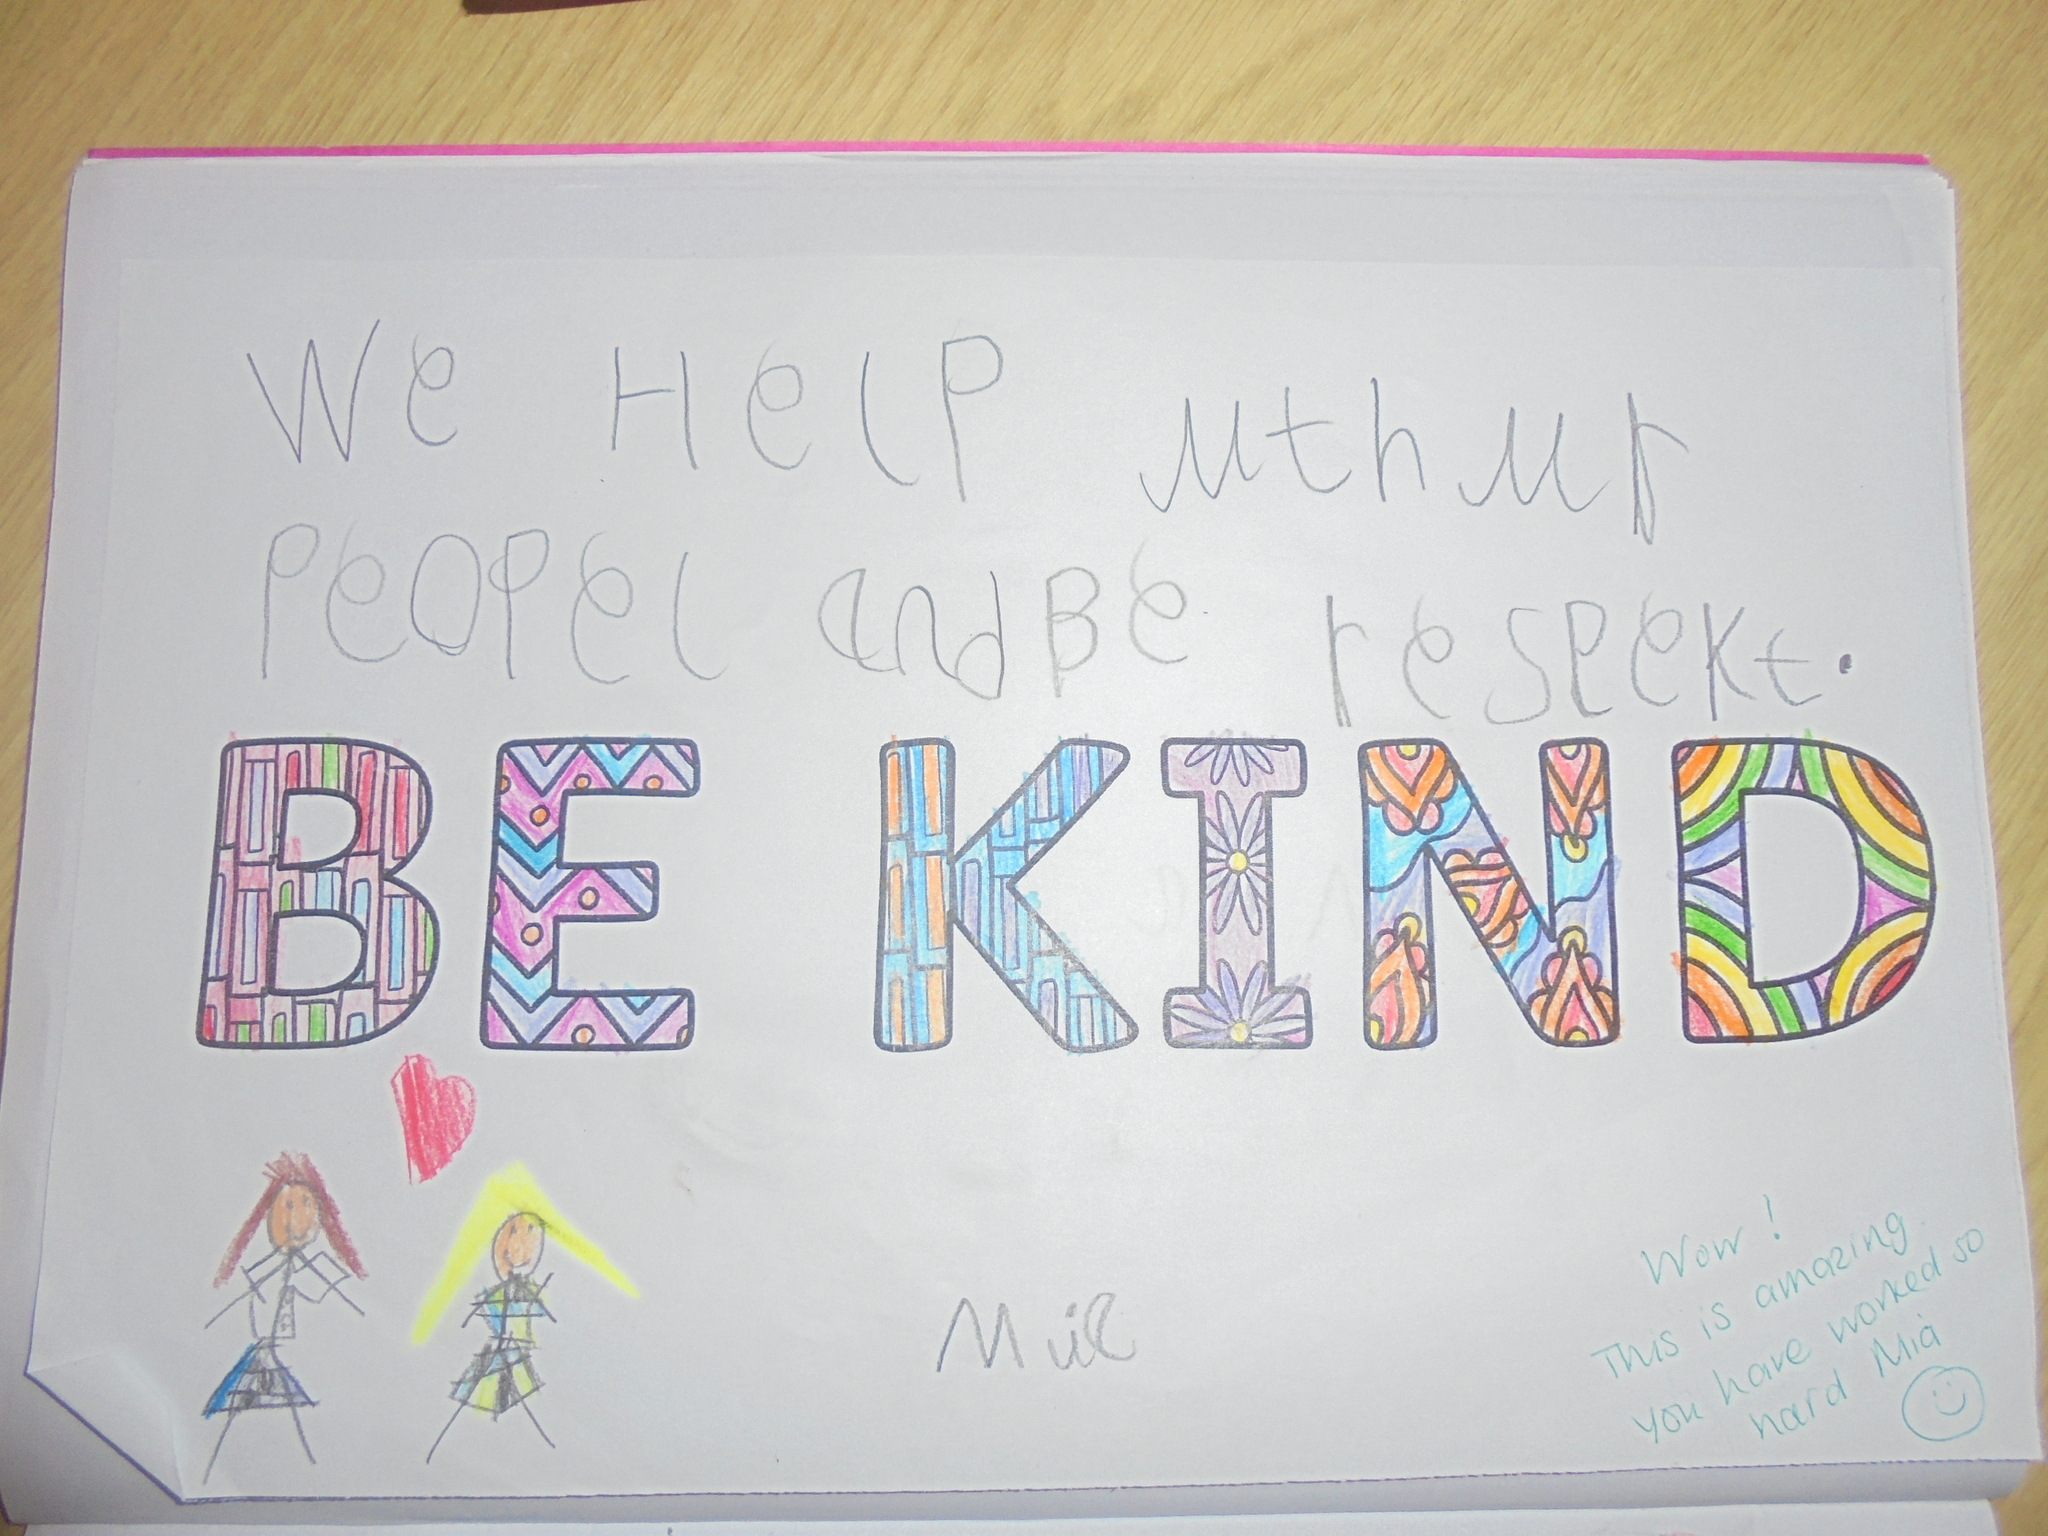 We Help uthur
PeoPel and Be respekt.
BE KIND
Wow!
This is amazing
You have worked so
hard Mia